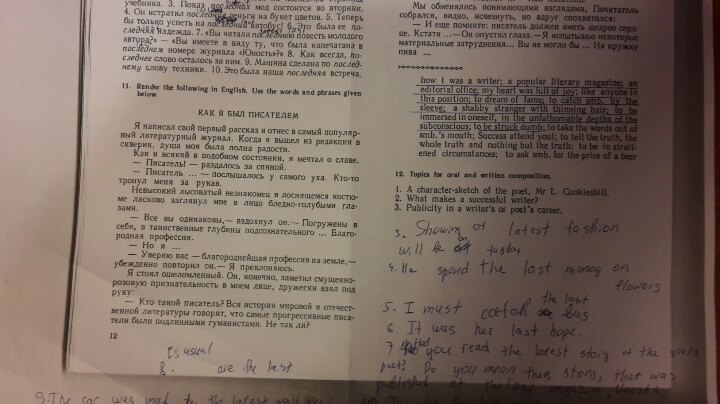 учебника. 3. Показ последних мод состоится во вторник.
4. Он истратил последние деньги на букет цветов. 5. Теперь
бы только успеть на последний автобус! 6. Это была ее по-
следняя надежда. 7. «Вы читали последнюю повесть молодого
автора?» — «Вы имеете в виду ту, что была напечатана в
последнем номере журнала «Юность»?» 8. Как всегда, по-
следнее слово осталось за ним. 9. Машина сделана по послед-
нему слову техники. 10. Это была наша последняя встреча.
11. Render the following in English. Use the words and phrases given
below.
КАК Я БЫЛ ПИСАТЕЛЕМ
Я написал свой первый рассказ и отнес в самый популяр-
ный литературный журнал. Когда я вышел из редакции в
скверик, душа моя была полна радости.
Как и всякий в подобном состоянии, я мечтал о славе.
— Писатель! — раздалось за спиной.
— Писатель ... — послышалось у самого уха. Кто-то
тронул меня за рукав.
Невысокий лысоватый незнакомец в лоснящемся костю-
ме ласково заглянул мне в лицо бледно-голубыми гла-
зами.
— Все вы одинаковы,— вздохнул он.— Погружены в
себя, в таинственные глубины подсознательного ... Благо-
родная профессия.
— Но я ...
— Уверяю вас — благороднейшая профессия на земле,—
убежденно повторил он.— Я преклоняюсь.
Я стоял ошеломленный. Он, конечно, заметил смущенно-
розовую признательность в моем лице, дружески взял под
руку:
— Кто такой писатель? Вся история мировой и отечест-
венной литературы говорит, что самые прогрессивные писа-
тели были подлинными гуманистами. Не так ли?
12
As usual
8. are the last
Мы обменялись понимающими взглядами. Почитатель
собрался, видно, исчезнуть, но вдруг спохватился:
— И еще помните: писатель должен иметь щедрое серд-
це. Кстати ...— Он опустил глаза.— Я испытываю некоторые
материальные затруднения... Вы не могли бы ... На кружку
пива ...
how I was a writer; a popular literary magazine; an
editorial office; my heart was full of joy; like anyone in
this position; to dream of fame; to catch smb. by the
sleeve; a shabby stranger with thinning hair; to be
immersed in oneself, in the unfathomable depths of the
subconscious; to be struck dumb; to take the words out of
smb.'s mouth; Success attend you!; to tell the truth, the
whole truth and nothing but the truth; to be in strait-
ened circumstances; to ask smb. for the price of a beer
12. Topics for oral and written composition.
1. A character-sketch of the poet, Mr L. Conkleshill.
2. What makes a successful writer?
3. Publicity in a writer's or poet's career.
3. Showing of latest fashion
will be on
4. He spend the last money on
flowers
5. I must catch the last bus
6. It was her last hope.
7 you read the latest story of the young
poet? Do you mean story, that was
published at the last
9. The car was mad by the latest